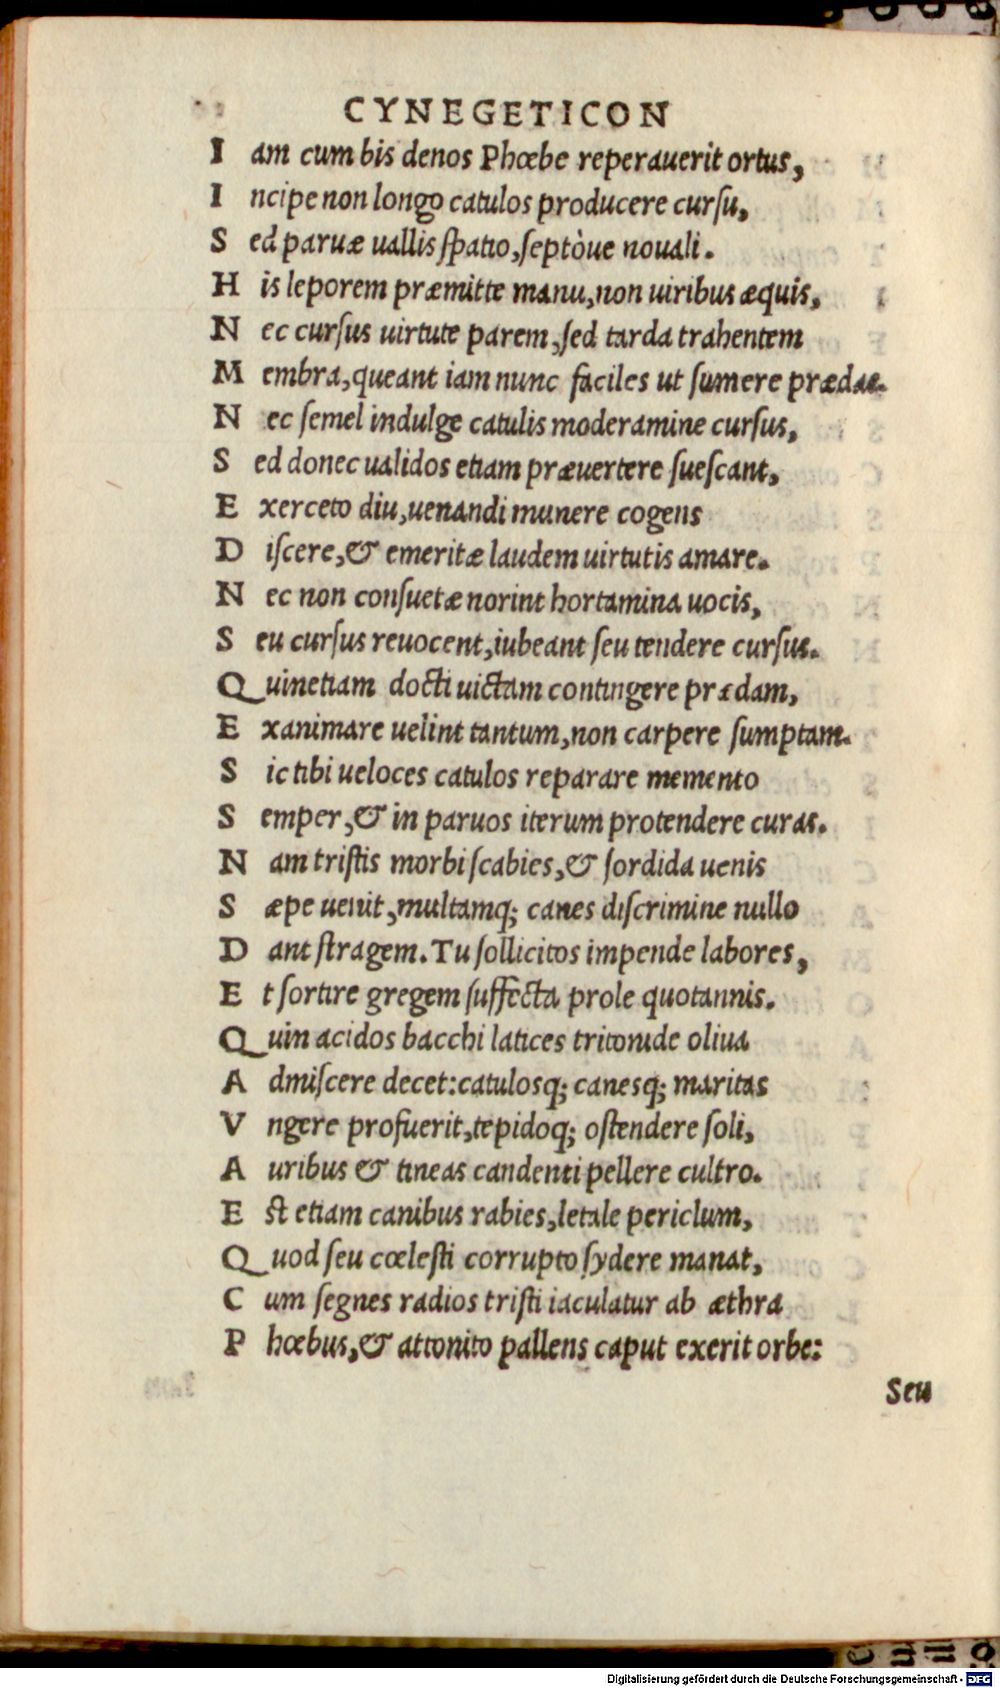 CYNEGETICON
I am cum bis denos Phœbe reperauerit ortus,
I ncipe non longo catulos producere cursu,
S ed paruæ uallis spatio, septòue nouali.
H is leporem præmitte manu, non uiribus æquis,
N ec cursus uirtute parem, sed tarda trahentem
M embra, queant iam nunc faciles ut sumere prædas.
N ec semel indulge catulis moderamine cursus,
S ed donec ualidos etiam præuertere suescant,
E xerceto diu, uenandi munere cogens
D iscere, & emeritæ laudem uirtutis amare.
N ec non consuetæ norint hortamina uocis,
S eu cursus reuocent, iubeant seu tendere cursus.
Q uinetiam docti uictam contingere prædam,
E xanimare uelint tantum, non carpere sumptam.
S ic tibi ueloces catulos reparare memento
S emper, & in paruos iterum protendere curas.
N am tristis morbi scabies, & sordida uenis
S æpe uenit, multamq; canes discrimine nullo
D ant stragem. Tu sollicitos impende labores,
E t sortire gregem suffecta prole quotannis.
Q uin acidos bacchi latices tritonide oliua
A dmiscere decet: catulosq; canesq; maritas
V ngere profuerit, tepidoq; ostendere soli,
A uribus & tineas candenti pellere cultro.
E st etiam canibus rabies, letale periclum,
Q uod seu cœlesti corrupto sydere manat,
C um segnes radios tristi iaculatur ab æthra
P hœbus, & attonito pallens caput exerit orbe:
Seu
Digitalisierung gefördert durch die Deutsche Forschungsgemeinschaft - DFG